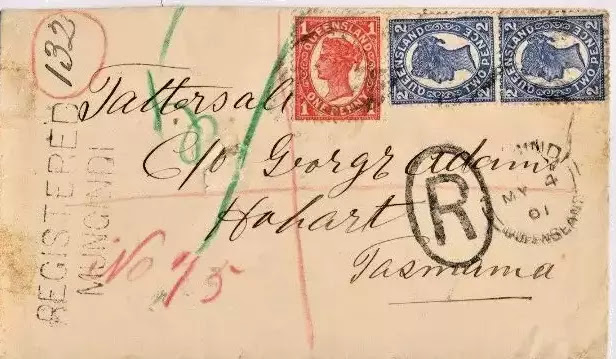 132
REGISTERED
MUNGINDI
1 QUEENSLAND 1
1 ONE PENNY 1
2 QUEENSLAND 2
2 TWO PENCE 2
2 QUEENSLAND 2
2 TWO PENCE 2
Tattersall
C/o George Adams
Hobart
Tasmania
R
MY 4
01
QUEENSLAND
No 75